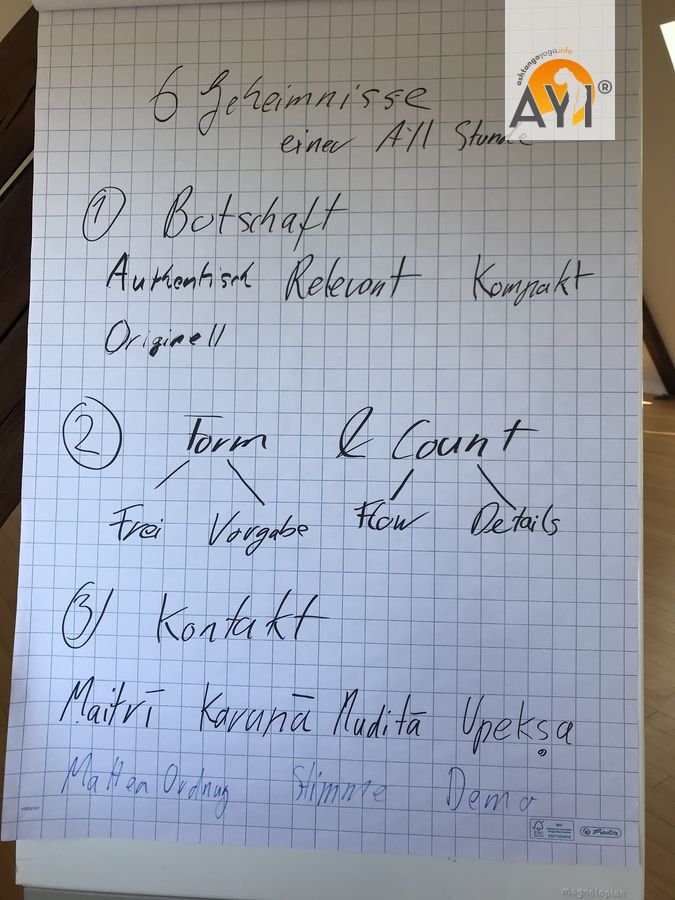 ashtangayoga.info
AYI®
6 Geheimnisse
einer AYI Stunde
① Botschaft
Authentisch Relevant Kompakt
Originell
② Form & Count
Frei Vorgabe Flow Details
③ Kontakt
Maitrī Karunā Muditā Upekṣa
Matten Ordnung Stimme Demo
FSC
herlitz
magnetoplan